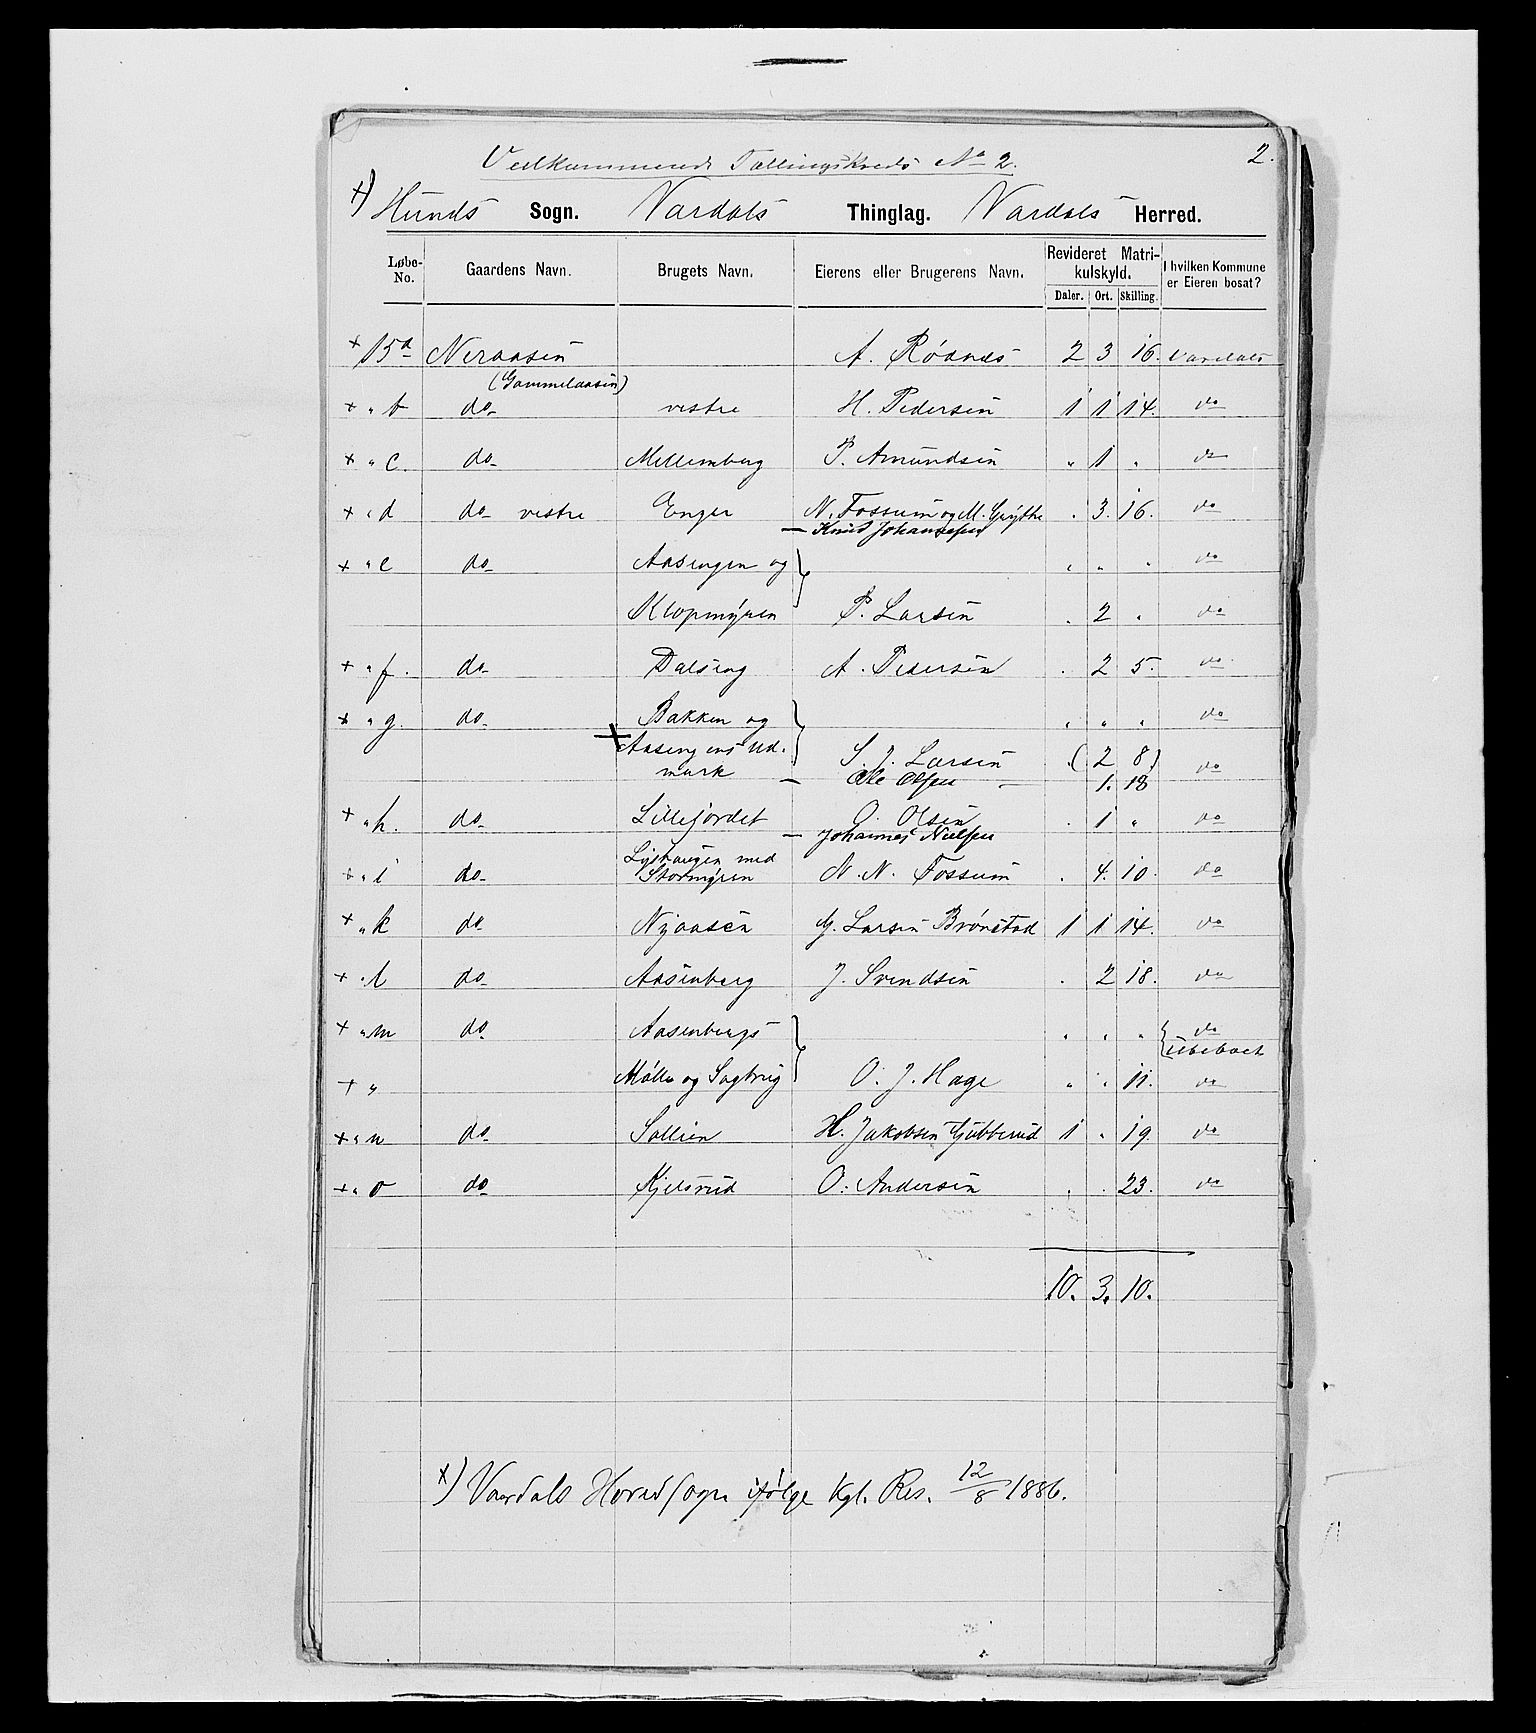 Vedkommende Tællingskreds No 2. 2.
x) Hunds Sogn. Vardals Thinglag. Vardals Herred.
Løbe-No. Gaardens Navn. Brugets Navn. Eierens eller Brugerens Navn. Revideret Matrikulskyld. Daler. Ort. Skilling. I hvilken Kommune er Eieren bosat?
x 15a Neraasen A. Røsnes 2 3 16. Vardals
(Gammelaasen)
x " b do vestre H. Pedersen 1 1 14. do
x " c. do Mellemberg P. Amundsen " 1 " do
x " d do vestre Enger N. Fossum og M. Grythe . 3. 16. do
— Knud Johannesen
x " e do Aasengen og } " " " do
Klopmyren P. Larsen . 2 " do
x " f. do Dalseng A. Pedersen . 2 5. do
x " g. do Bakken og } " " " do
x Aasengens Ud-
mark S. J. Larsen . (2 8) do
— Ole Olsen — 1. 18
x " h. do Lillejordet O. Olsen . 1 " do
— Johannes Nielsen
x " i do Lyshaugen med
Stormyren N. N. Fossum . 4. 10. do
x " k do Nyaasen G. Larsen Brønstad 1 1 14. do
x " l do Aasenberg J. Svendsen . 2 18. do
x " m do Aasenbergs } " " " { do
ubeboet
x " Mølle og Sagbrug O. J. Hage " " 11. do
x " n do Sollien H. Jakobsen Gubberud 1 " 19 do
x " o do Kjelsrud O. Andersen . . 23. do
10. 3. 10.
x) Vardals Hovedsogn ifølge Kgl. Res. 12/8 1886.